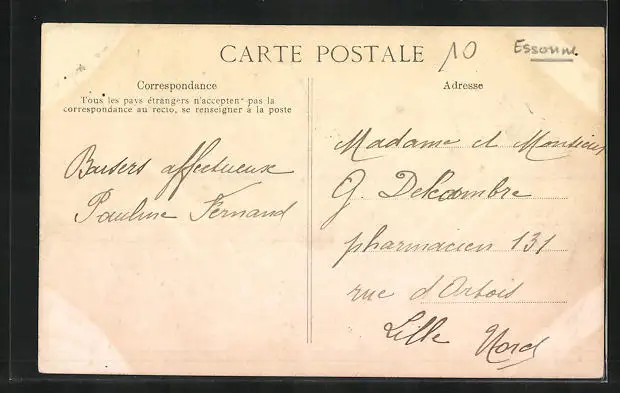 CARTE POSTALE
10
Essonne.
Correspondance
Tous les pays étrangers n'acceptent pas la
correspondance au recto, se renseigner à la poste
Baisers affectueux
Pauline Fernand
Adresse
Madame et Monsieur
G. Delcambre
pharmacien 131
rue d'Artois
Lille Nord